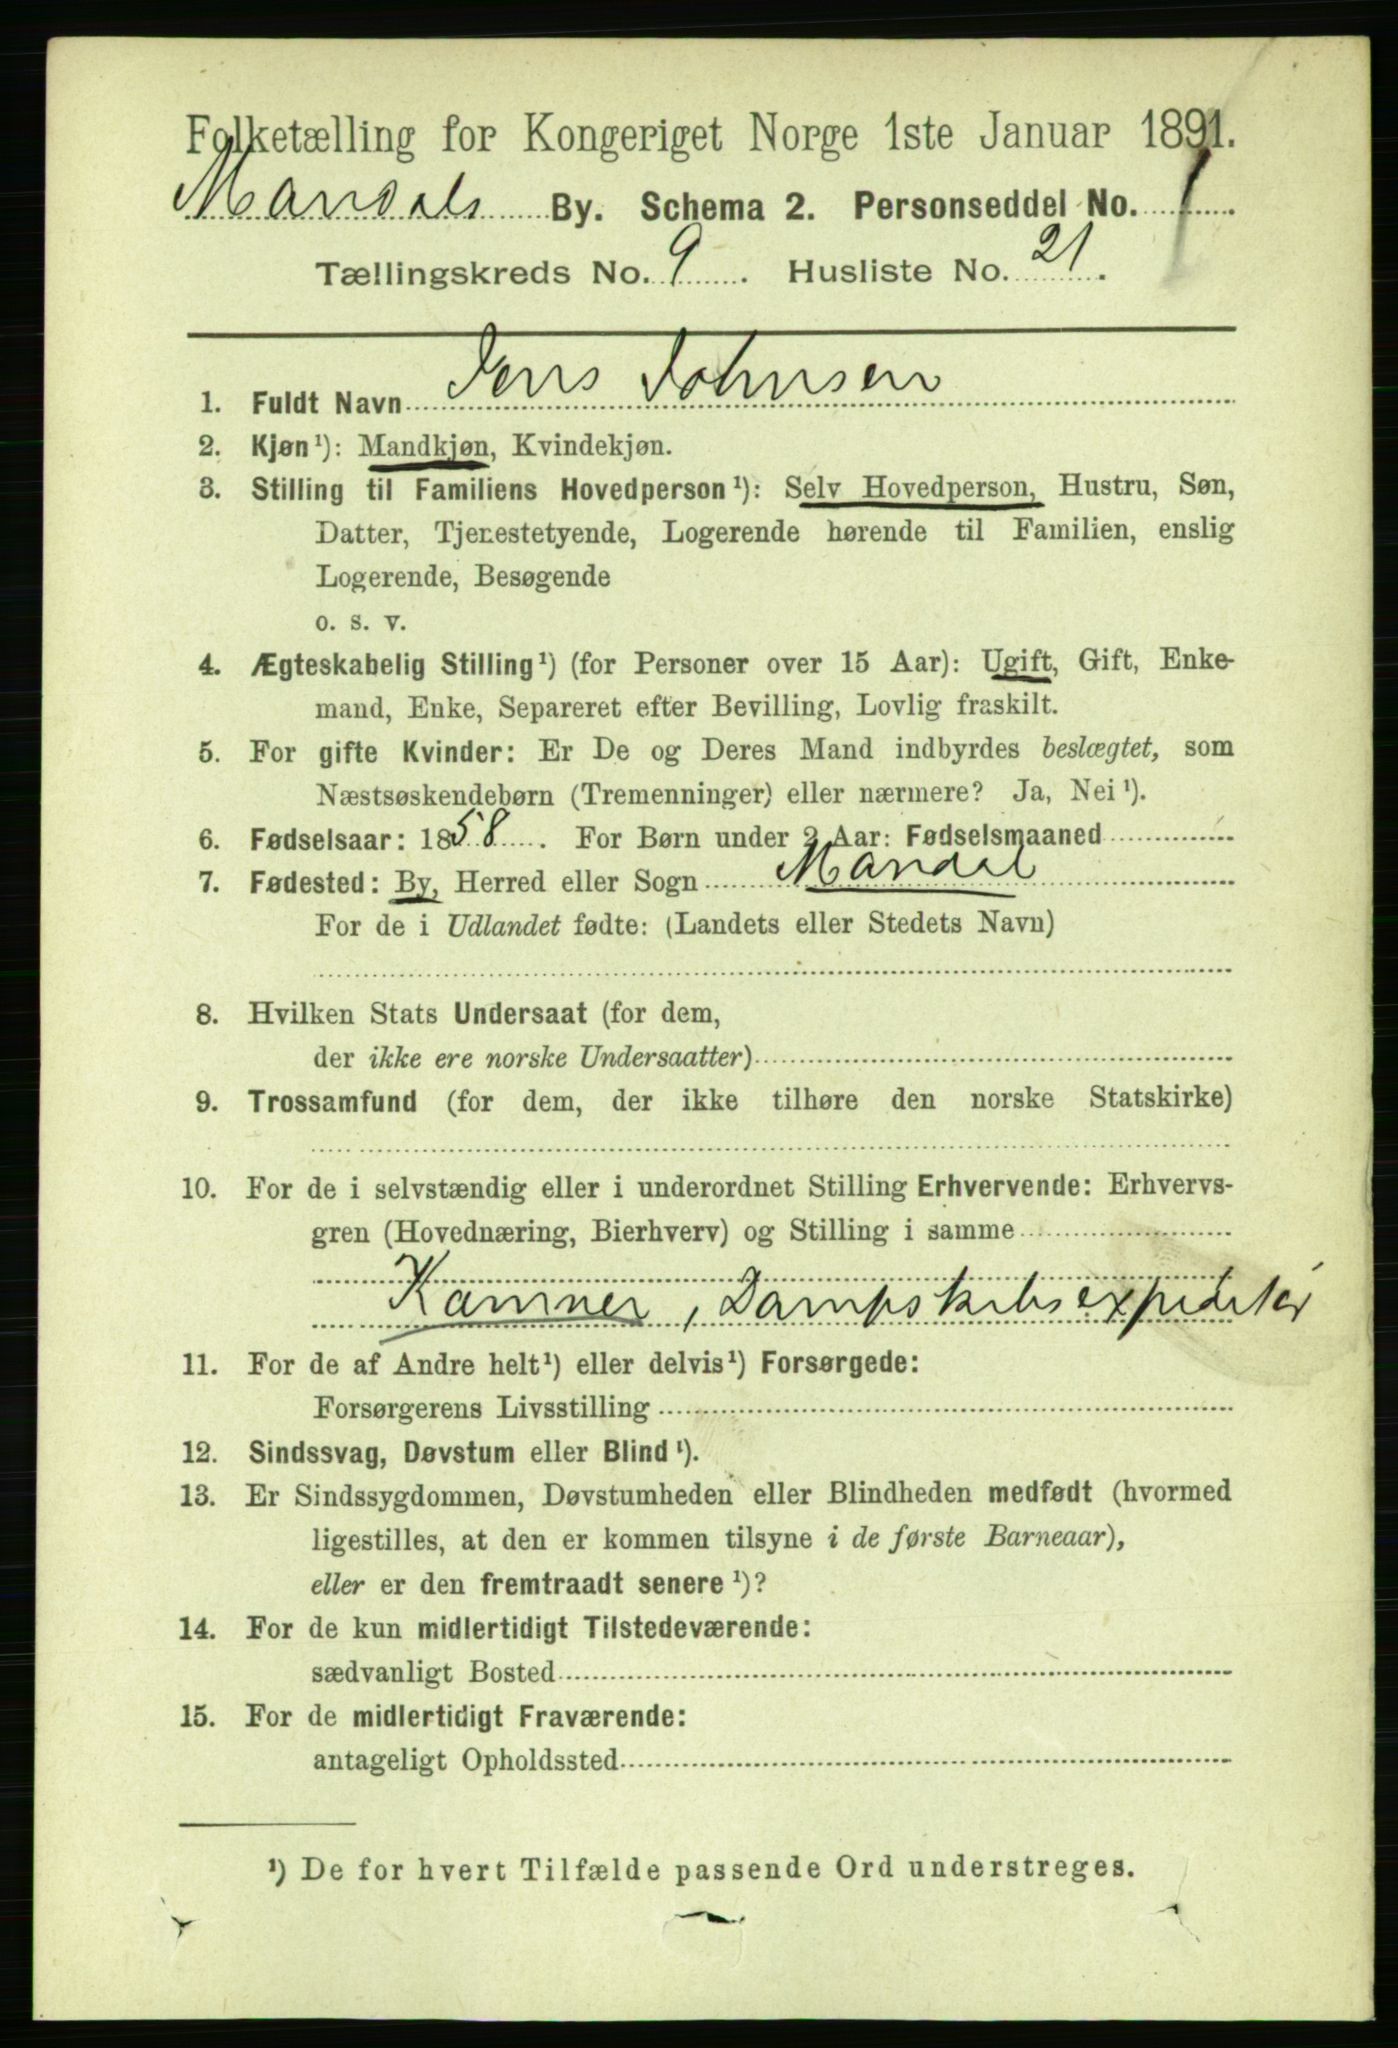 Folketælling for Kongeriget Norge 1ste Januar 1891.
Mandals By. Schema 2. Personseddel No. 1
Tællingskreds No. 9. Husliste No. 21.
1. Fuldt Navn Jens Johnsen
2. Kjøn¹): Mandkjøn, Kvindekjøn.
3. Stilling til Familiens Hovedperson¹): Selv Hovedperson, Hustru, Søn,
Datter, Tjenestetyende, Logerende hørende til Familien, enslig
Logerende, Besøgende
o. s. v.
4. Ægteskabelig Stilling¹) (for Personer over 15 Aar): Ugift, Gift, Enke-
mand, Enke, Separeret efter Bevilling, Lovlig fraskilt.
5. For gifte Kvinder: Er De og Deres Mand indbyrdes beslægtet, som
Næstsøskendebørn (Tremenninger) eller nærmere? Ja, Nei¹).
6. Fødselsaar: 1858. For Børn under 2 Aar: Fødselsmaaned
7. Fødested: By, Herred eller Sogn Mandal
For de i Udlandet fødte: (Landets eller Stedets Navn)
8. Hvilken Stats Undersaat (for dem,
der ikke ere norske Undersaatter)
9. Trossamfund (for dem, der ikke tilhøre den norske Statskirke)
10. For de i selvstændig eller i underordnet Stilling Erhvervende: Erhvervs-
gren (Hovednæring, Bierhverv) og Stilling i samme
Kæmner, Dampskibsexpeditør
11. For de af Andre helt¹) eller delvis¹) Forsørgede:
Forsørgerens Livsstilling
12. Sindssvag, Døvstum eller Blind¹).
13. Er Sindssygdommen, Døvstumheden eller Blindheden medfødt (hvormed
ligestilles, at den er kommen tilsyne i de første Barneaar),
eller er den fremtraadt senere¹)?
14. For de kun midlertidigt Tilstedeværende:
sædvanligt Bosted
15. For de midlertidigt Fraværende:
antageligt Opholdssted
¹) De for hvert Tilfælde passende Ord understreges.